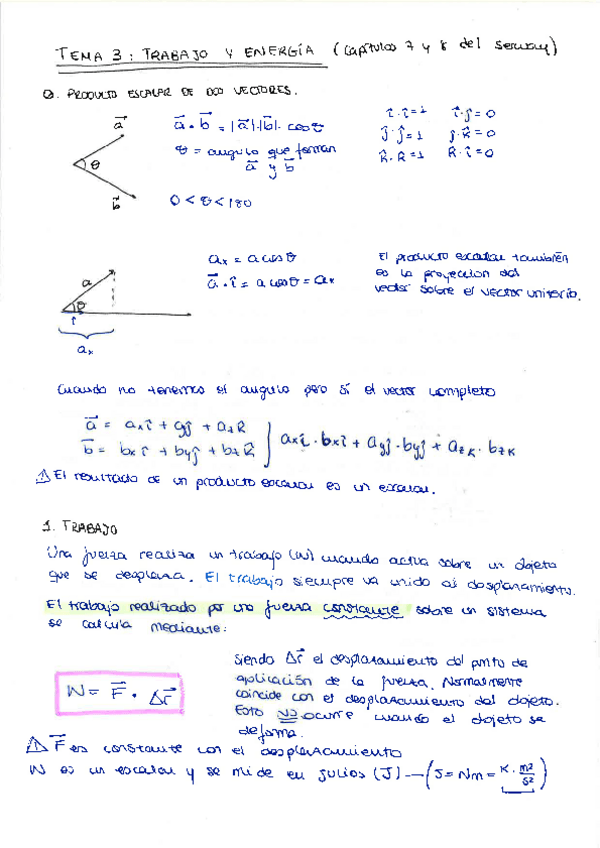 TEMA 3: TRABAJO Y ENERGÍA (Capítulos 7 y 8 del serway)
0. PRODUCTO ESCALAR DE DOS VECTORES.
a⃗
θ
b⃗
a⃗ · b⃗ = |a⃗|·|b⃗| · cosθ
θ = angulo que forman
a⃗ y b⃗
0 < θ < 180
î · î = 1 î · ĵ = 0
ĵ · ĵ = 1 ĵ · k̂ = 0
k̂ · k̂ = 1 k̂ · î = 0
a
θ
î
ax
ax = a cosθ
a⃗ · î = a cosθ = ax
El producto escalar también
es la proyeccion del
vector sobre el vector unitario.
Cuando no tenemos el angulo pero sí el vector completo
a⃗ = axî + ayĵ + azk̂
b⃗ = bxî + byĵ + bzk̂
axî · bxî + ayĵ · byĵ + azk · bzk
⚠ El resultado de un producto escalar es un escalar.
1. TRABAJO
Una fuerza realiza un trabajo (W) cuando actúa sobre un objeto
que se desplaza. El trabajo siempre va unido al desplazamiento.
El trabajo realizado por una fuerza constante sobre un sistema
se calcula mediante:
W = F⃗ · Δr⃗
siendo Δr⃗ el desplazamiento del punto de
aplicación de la fuerza. Normalmente
coincide con el desplazamiento del objeto.
Esto NO ocurre cuando el objeto se
deforma.
⚠ F⃗ es constante con el desplazamiento
W es un escalar y se mide en julios (J) — (J = Nm = K · m²/s²)